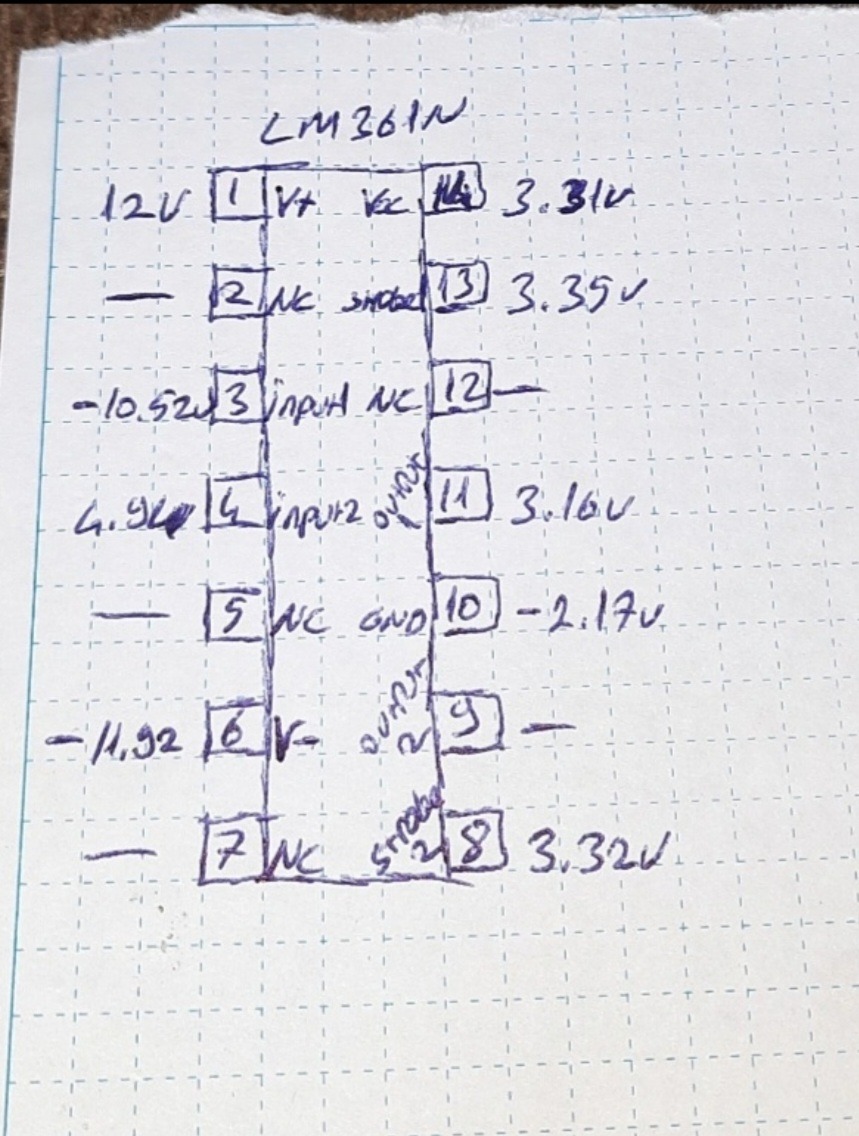 LM361N
12V 1 V+ Vcc 14 3.31V
— 2 NC strobe1 13 3.35V
-10.52V 3 input1 NC 12 —
4.94 4 input2 output 1 11 3.16V
— 5 NC GND 10 -2.17V
-11.92 6 V- output 2 9 —
— 7 NC strobe 2 8 3.32V